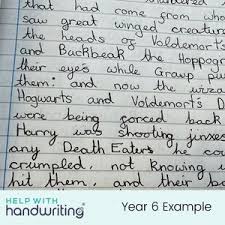 that had come from who
saw great winged creature
the heads of Voldemort's
and Buckbeak the Hippogr
their eyes while Grawp pu
them: and now the wiza
Hogwarts and Voldemort's D
were being forced back
Harry was shooting jinxes
any Death Eaters he co
crumpled, not knowing
hit them, and their bo
HELP WITH
handwriting
Year 6 Example